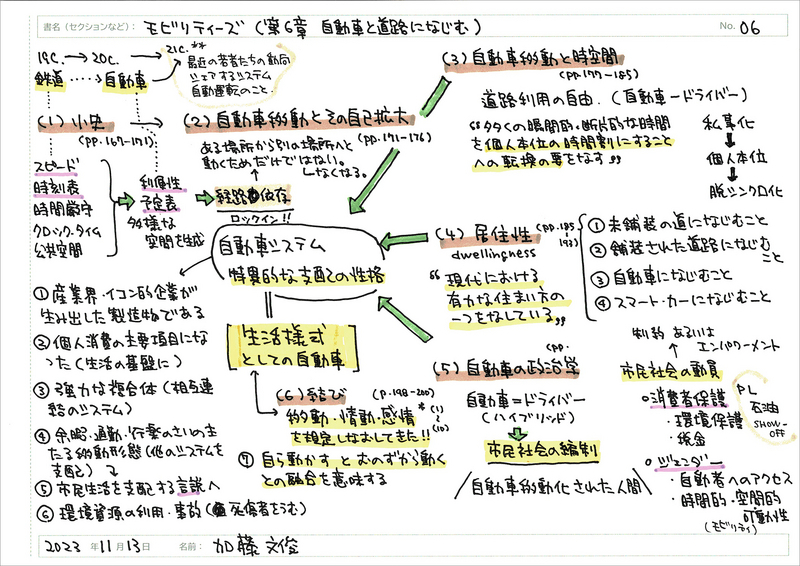 書名(セクションなど): モビリティーズ (第6章 自動車と道路になじむ)
No. 06
19C. → 20C.
21C. **
鉄道 ····> 自動車
最近の若者たちの動向
シェアするシステム
自動運転のこと.
(1) 小史
(pp.167-171)
スピード
時刻表
時間厳守
クロック・タイム
公共空間
利便性
予定表
多様な
空間を生成
(2) 自動車移動とその自己拡大
(pp.171-176)
ある場所から別の場所へと
動くためだけではない。
なくなる。
経路依存
ロックイン!!
自動車システム
特異的な支配の性格
生活様式
としての自動車
(3) 自動車移動と時空間
(pp.177-185)
道路利用の自由. (自動車-ドライバー)
“多くの瞬間的・断片的な時間
を個人本位の時間割にすること
への転換の要をなす”
私事化
個人本位
脱シンクロ化
(4) 居住性
(pp.185-193)
dwellingness
“現代における
有力な住まい方の
一つをなしている”
① 未舗装の道になじむこと
② 舗装された道路になじむ
こと
③ 自動車になじむこと
④ スマート・カーになじむこと
① 産業界・イコン的企業が
生み出した製造物である
② 個人消費の主要項目にな
った (生活の基盤に)
③ 強力な複合体 (相互連
絡のシステム)
④ 余暇・通勤・行楽のさいの主
たる移動形態 (他のシステムを
支配)
⑤ 市民生活を支配する言説へ
⑥ 環境資源の利用・事故 (死傷者をうむ)
(5) 自動車の政治学
(pp.
自動車=ドライバー
(ハイブリッド)
市民社会の編制
/自動車移動化された人間\
制約 あるいは
エンパワーメント
市民社会の動員
○消費者保護
・環境保護
・税金
PL
石油
SHOW-
OFF
○ジェンダー
・自動者へのアクセス
・時間的・空間的
可動性
(モビリティ)
(6) 結び
(p.198-200)
移動・情動・感情
* (1)
(10)
を規定しなおしてきた!!
⑦ 自ら動かす と おのずから動く
との融合を意味する
2023 年 11 月 13 日 名前: 加藤 文俊